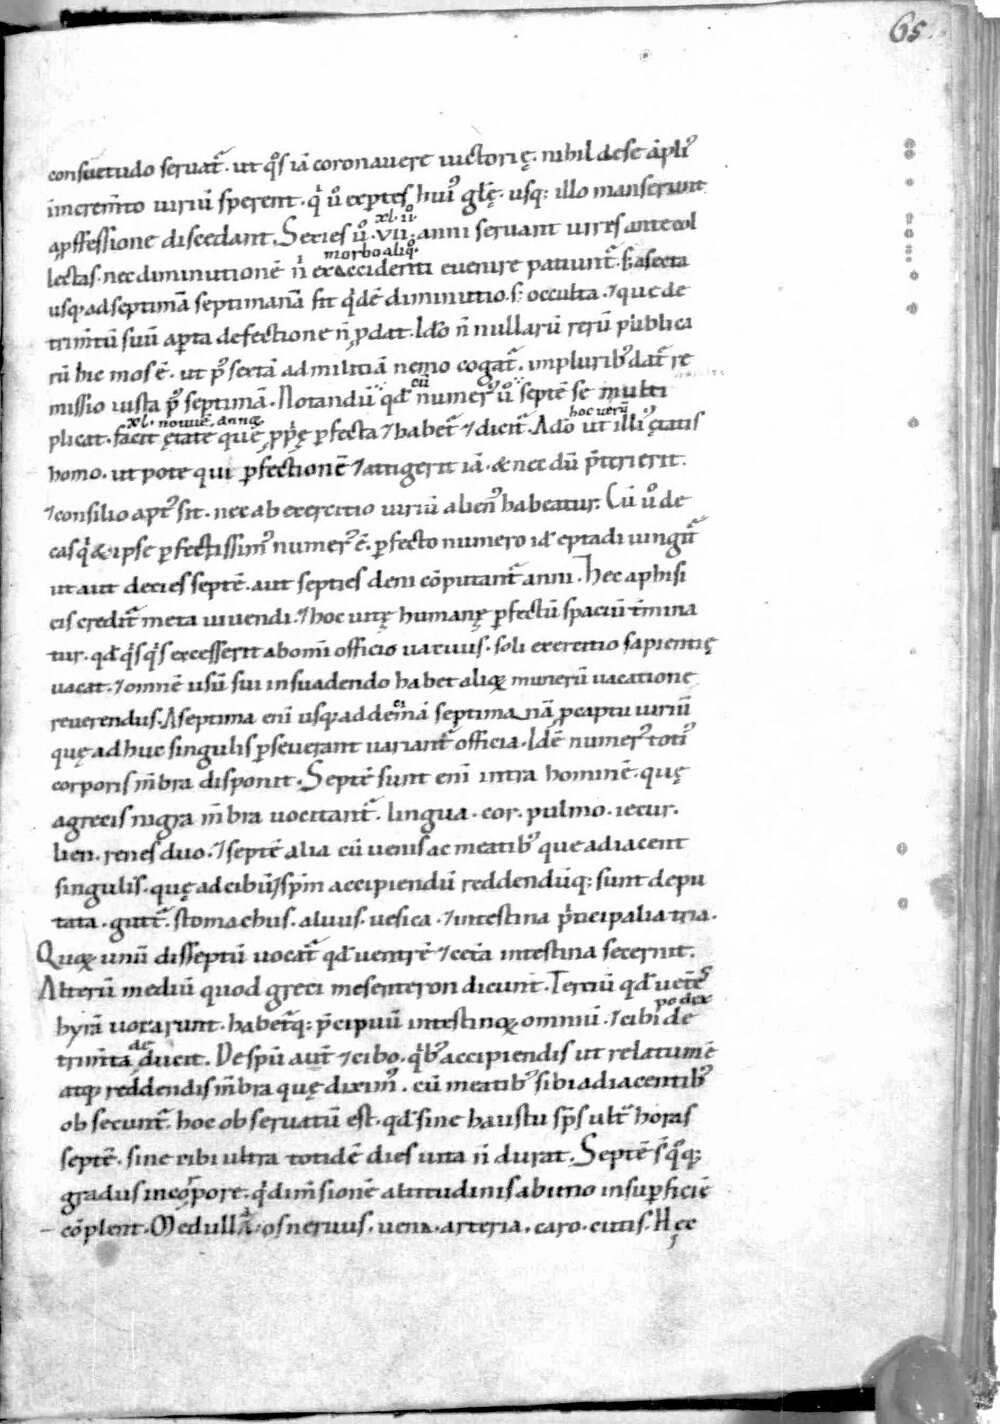 65.
consuetudo seruat᷑. ut q̊s iā coronauere uictorię. nihil de se āpliꝰ
increm̅to uiriū sperent. q̇ ů exp̱tes huiꝰ gl̅ę. usq; illo manserunt
a ꝓfessione discedant. Sexies ů .VII. anni seruant uires ante col
xl. ii.
lectas. nec diminutionē n̅ ex accidenti euenire patiunt᷑. S; a sexta
morbo aliq̊.
usq; ad septimā septimanā fit q̇dē diminutio. s; occulta. ⁊ que de
trim̅tū suū ap̱ta defectione n̅ ꝓdat. Ido n̅ nullarū rerū publica
rū hic mos ē. ut pꝰ sextā ad militiā nemo cogat᷑. in pluribꝰ dat᷑ re
missio iusta pꝰ septimā. Notandū qđ cū numerꝰ ů septē se multi
plicat. facit ętate que ꝓprię p̱fecta ⁊ habet᷑ ⁊ dicit᷑. Ado ut illiꝰ ętatis
xl. nouē. annoꝝ
hoc uerū
homo. ut pote qui p̱fectionē ⁊ attigerit iā. & nec dū p̅terierit.
⁊ consilio aptꝰ sit. nec ab exercitio uiriū alienꝰ habeatur. Cū ů de
cas q̇ & ipse p̱fectissimꝰ numerꝰ ē. p̱fecto numero id ē eptadi iungit᷑
ut aut decies septē. aut septies deni cōputant᷑ anni. Hec a phisi
cis credit᷑ meta uiuendi. ⁊ hoc uitę humanę p̱fectū spaciū t̅mina
tur. qđ q̇sq̇s excesserit ab om̅i officio uacuus. soli exercitio sapientię
uacat. ⁊ omnē usū sui in suadendo habet alioꝝ munerū uacatione
reuerendus. A septima eni̅ usq; ad decimā septimanā ꝓ captu uiriū
quę adhuc singulis p̱seuerant uariant᷑ officia. Idē numerꝰ totiꝰ
corporis m̅bra disponit. Septē sunt eni̅ intra hominē. quę
a grecis nigra m̅bra uocitant᷑. lingua. cor. pulmo. iecur.
lien. renes duo. ⁊ septē alia cū uenis ac meatibꝰ que adiacent
singulis. quę ad cibū ⁊ sp̅m accipiendū reddendūq; sunt depu
tata. gutt᷑. stomachus. aluus. uesica. ⁊ intestina p̅ncipalia tria.
Quoꝝ unū disseptū uocat᷑ qđ uentrē ⁊ cet̅a intestina secernit.
Alterū mediū quod greci mesenteron dicunt. Terciū qđ uet̅es
hyrā uocarunt. habet᷑q; p̅cipuū intestinoꝝ omniū. ⁊ cibi de
podex
trim̅ta deducit. De sp̅u aut̅ ⁊ cibo. q̇bꝰ accipiendis ut relatum ē
atq; reddendis m̅bra quę diximꝰ. cū meatibꝰ sibi adiacentibꝰ
obsecunt᷑. hoc obseruatū est. qđ sine haustu sp̅s ult᷑ horas
septē. sine cibi ultra totidē dies uita n̅ durat. Septē s̅ q̊q;
gradus in corpore. q̇ dim̅sionē altitudinis ab imo in sup̱ficiē
cōplent. Medulla. os. neruus. uena. arteria. caro. cutis. Hęc